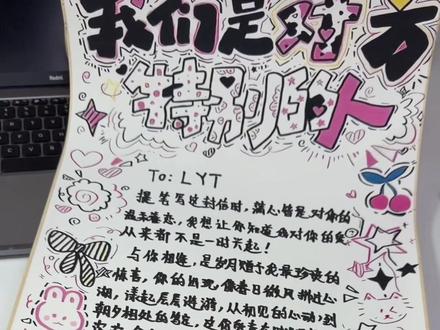 Redmi
我们是对方
特别的人
To: LYT
提笔写过封信时,满心皆是对你的
温柔眷恋,我想让你知道我对你的爱
从来都不是一时兴起!
与你相逢,是岁月赠予我最珍贵的
惊喜,你的出现,像春日微风拂过心
湖,漾起层层涟漪,从初见的心动到
朝夕相处的笃定,这份